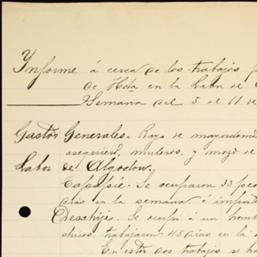 Informe á cerca de los trabajos
de Hota en la labor de
Semana del 5 de 11 de
Gastos Generales. Raya de mayordomo
muleros, y mozo de
Labor de Algodon.
Se ocuparon 33 peo
en la semana é
Desahije. Se ocupó á un hombre
chicos, trabajaron 48 dias en la
En estos dos trabajos, se